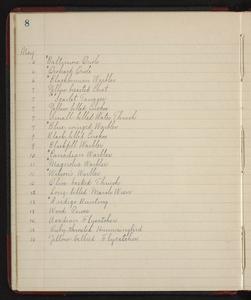 8
May
4 "Baltimore Oriole
6 "Orchard Oriole
6 "Blackburnian Warbler
7 Yellow breasted Chat
7 "Scarlet Tanager
7 Yellow billed Cuckoo
7 Small billed Water Thrush
7 Blue winged Warbler
8 Black billed Cuckoo
9 Blackpoll Warbler
10 "Canadian Warbler
11 "Magnolia Warbler
11 "Wilson's Warbler
12 Olive backed Thrush
12 Long billed Marsh Wren
13 Indigo Bunting
13 Wood Pewee
Acadian Flycatcher
Ruby throated Hummingbird
Yellow bellied Flycatcher